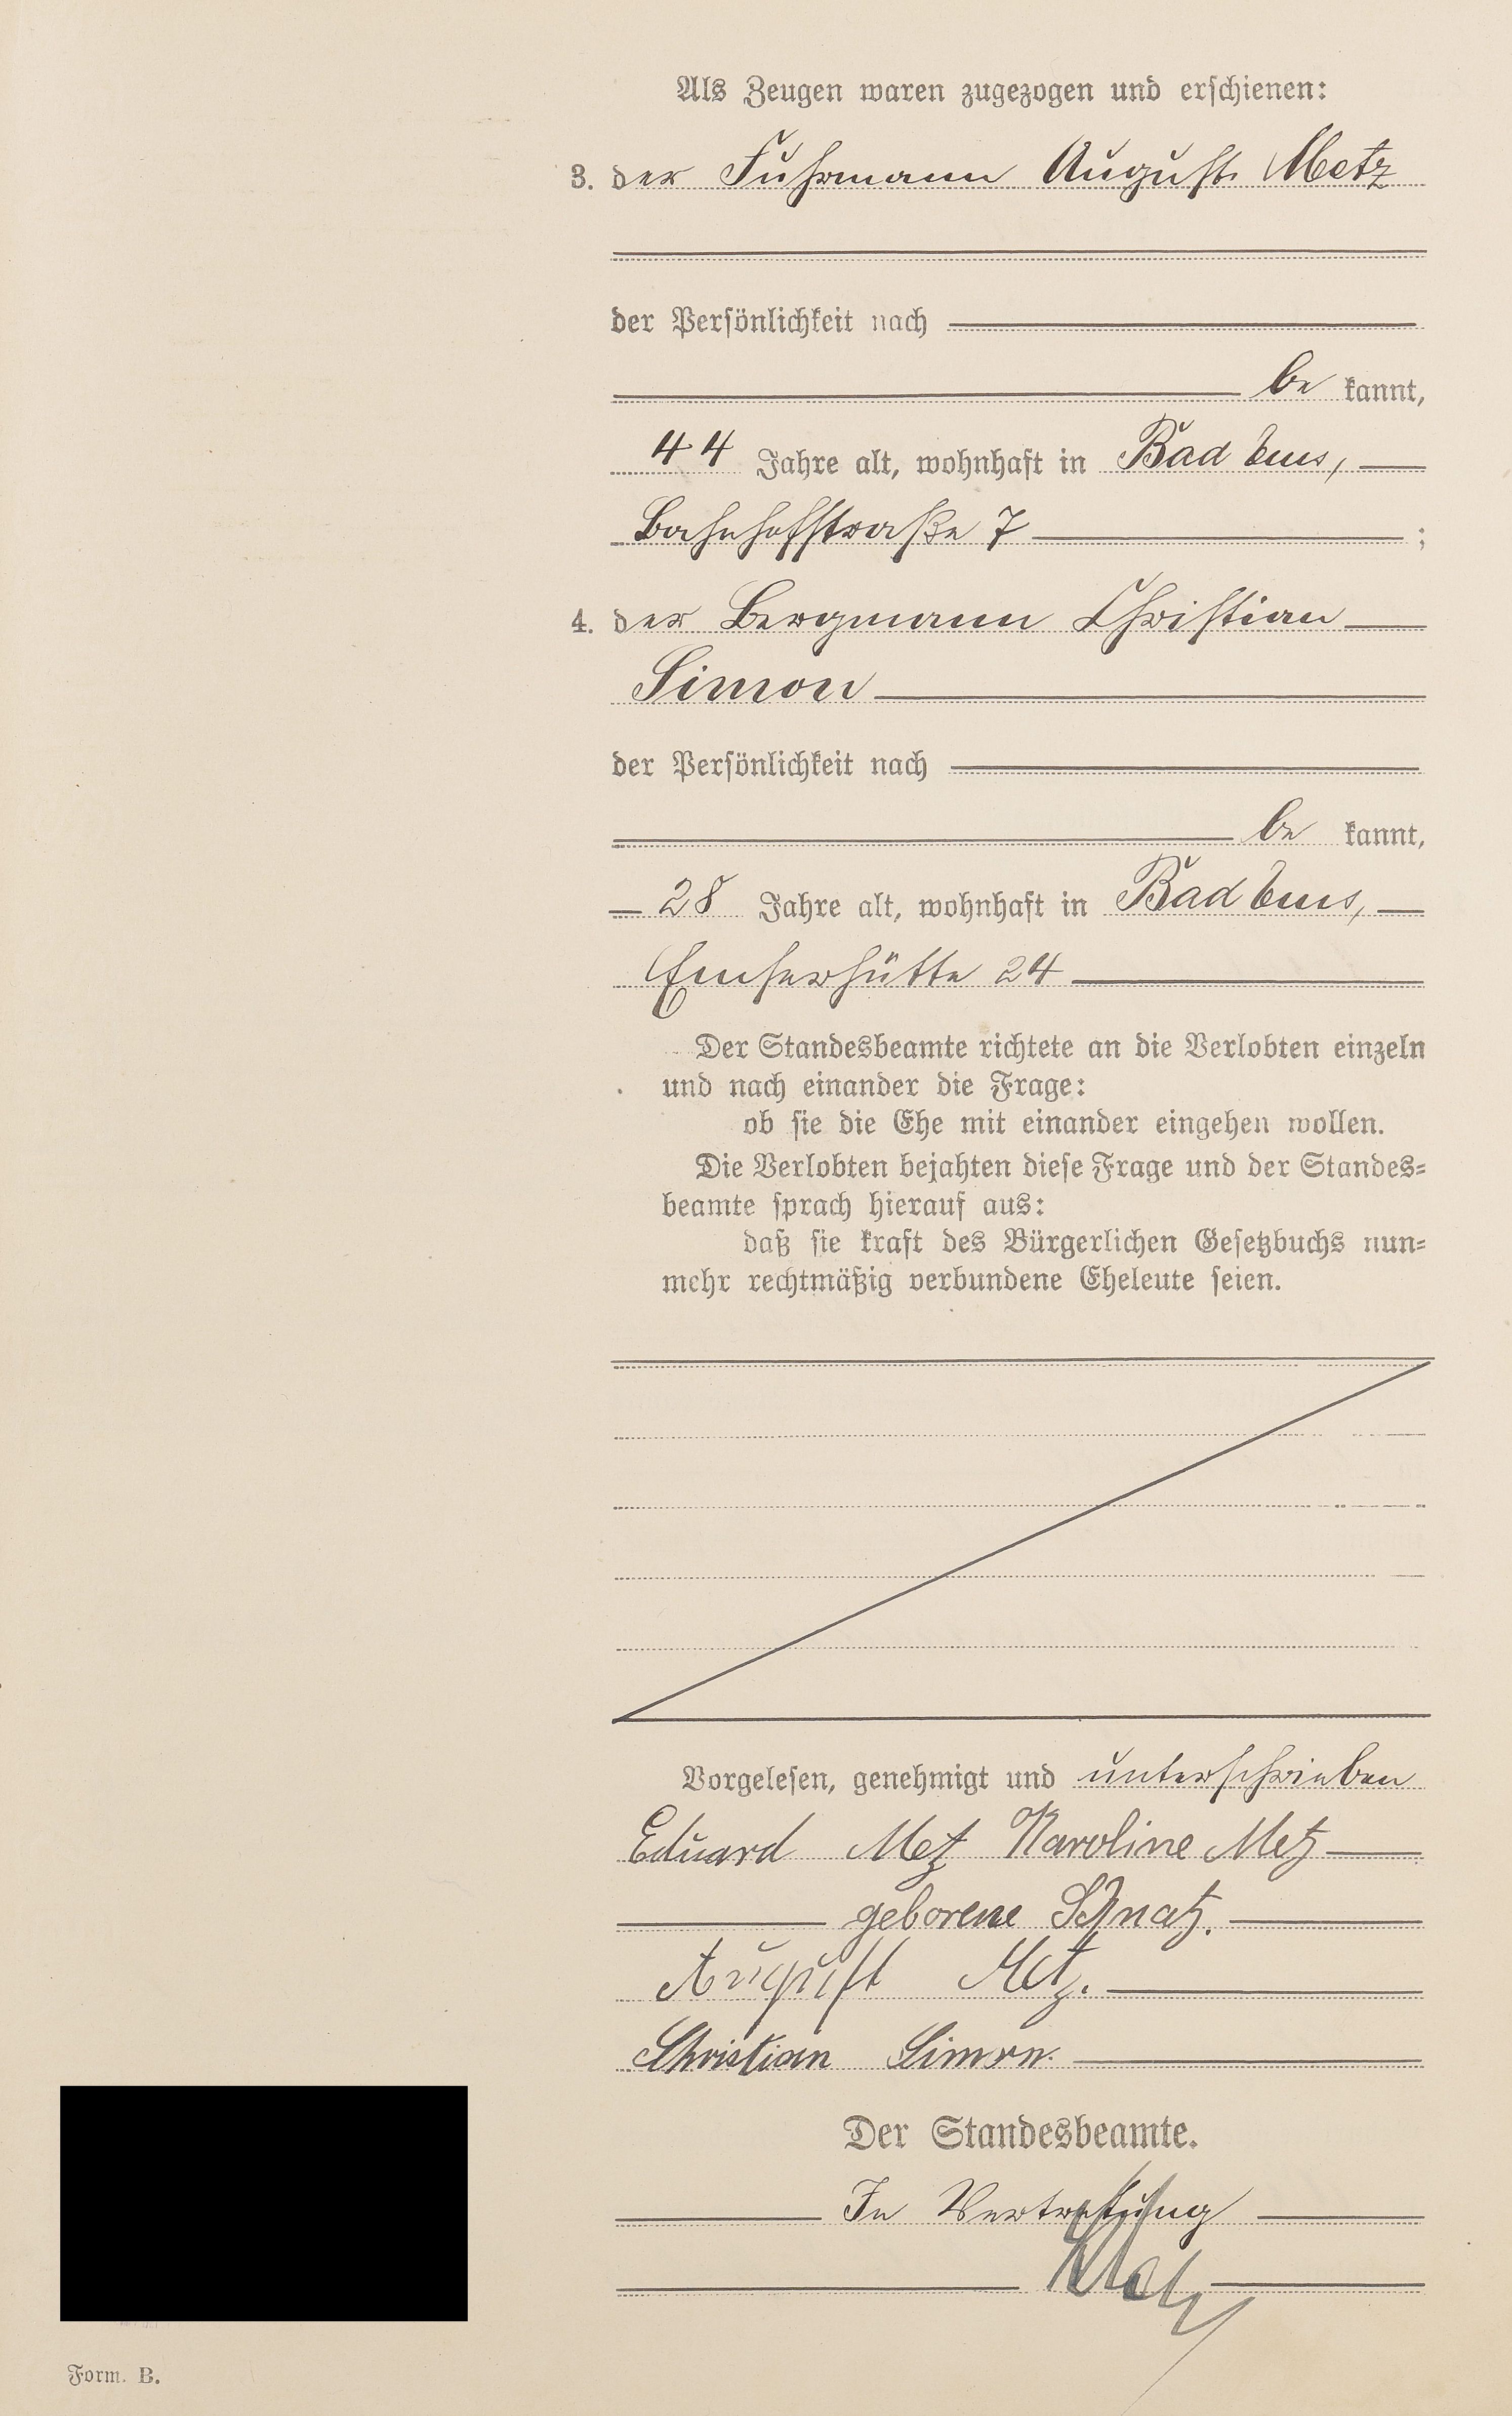 Als Zeugen waren zugezogen und erschienen:
3. der Fuhrmann August Metz
der Persönlichkeit nach
be kannt,
44 Jahre alt, wohnhaft in Bad Ems,
Bahnhofstraße 7 ;
4. der Bergmann Christian
Simon
der Persönlichkeit nach
be kannt,
28 Jahre alt, wohnhaft in Bad Ems,
Emserhütte 24
Der Standesbeamte richtete an die Verlobten einzeln
und nach einander die Frage:
ob sie die Ehe mit einander eingehen wollen.
Die Verlobten bejahten diese Frage und der Standes-
beamte sprach hierauf aus:
daß sie kraft des Bürgerlichen Gesetzbuchs nun-
mehr rechtmäßig verbundene Eheleute seien.
Vorgelesen, genehmigt und unterschrieben
Eduard Metz Karoline Metz
geborene Schnatz.
August Metz.
Christian Simon.
Der Standesbeamte.
In Vertretung
Form. B.